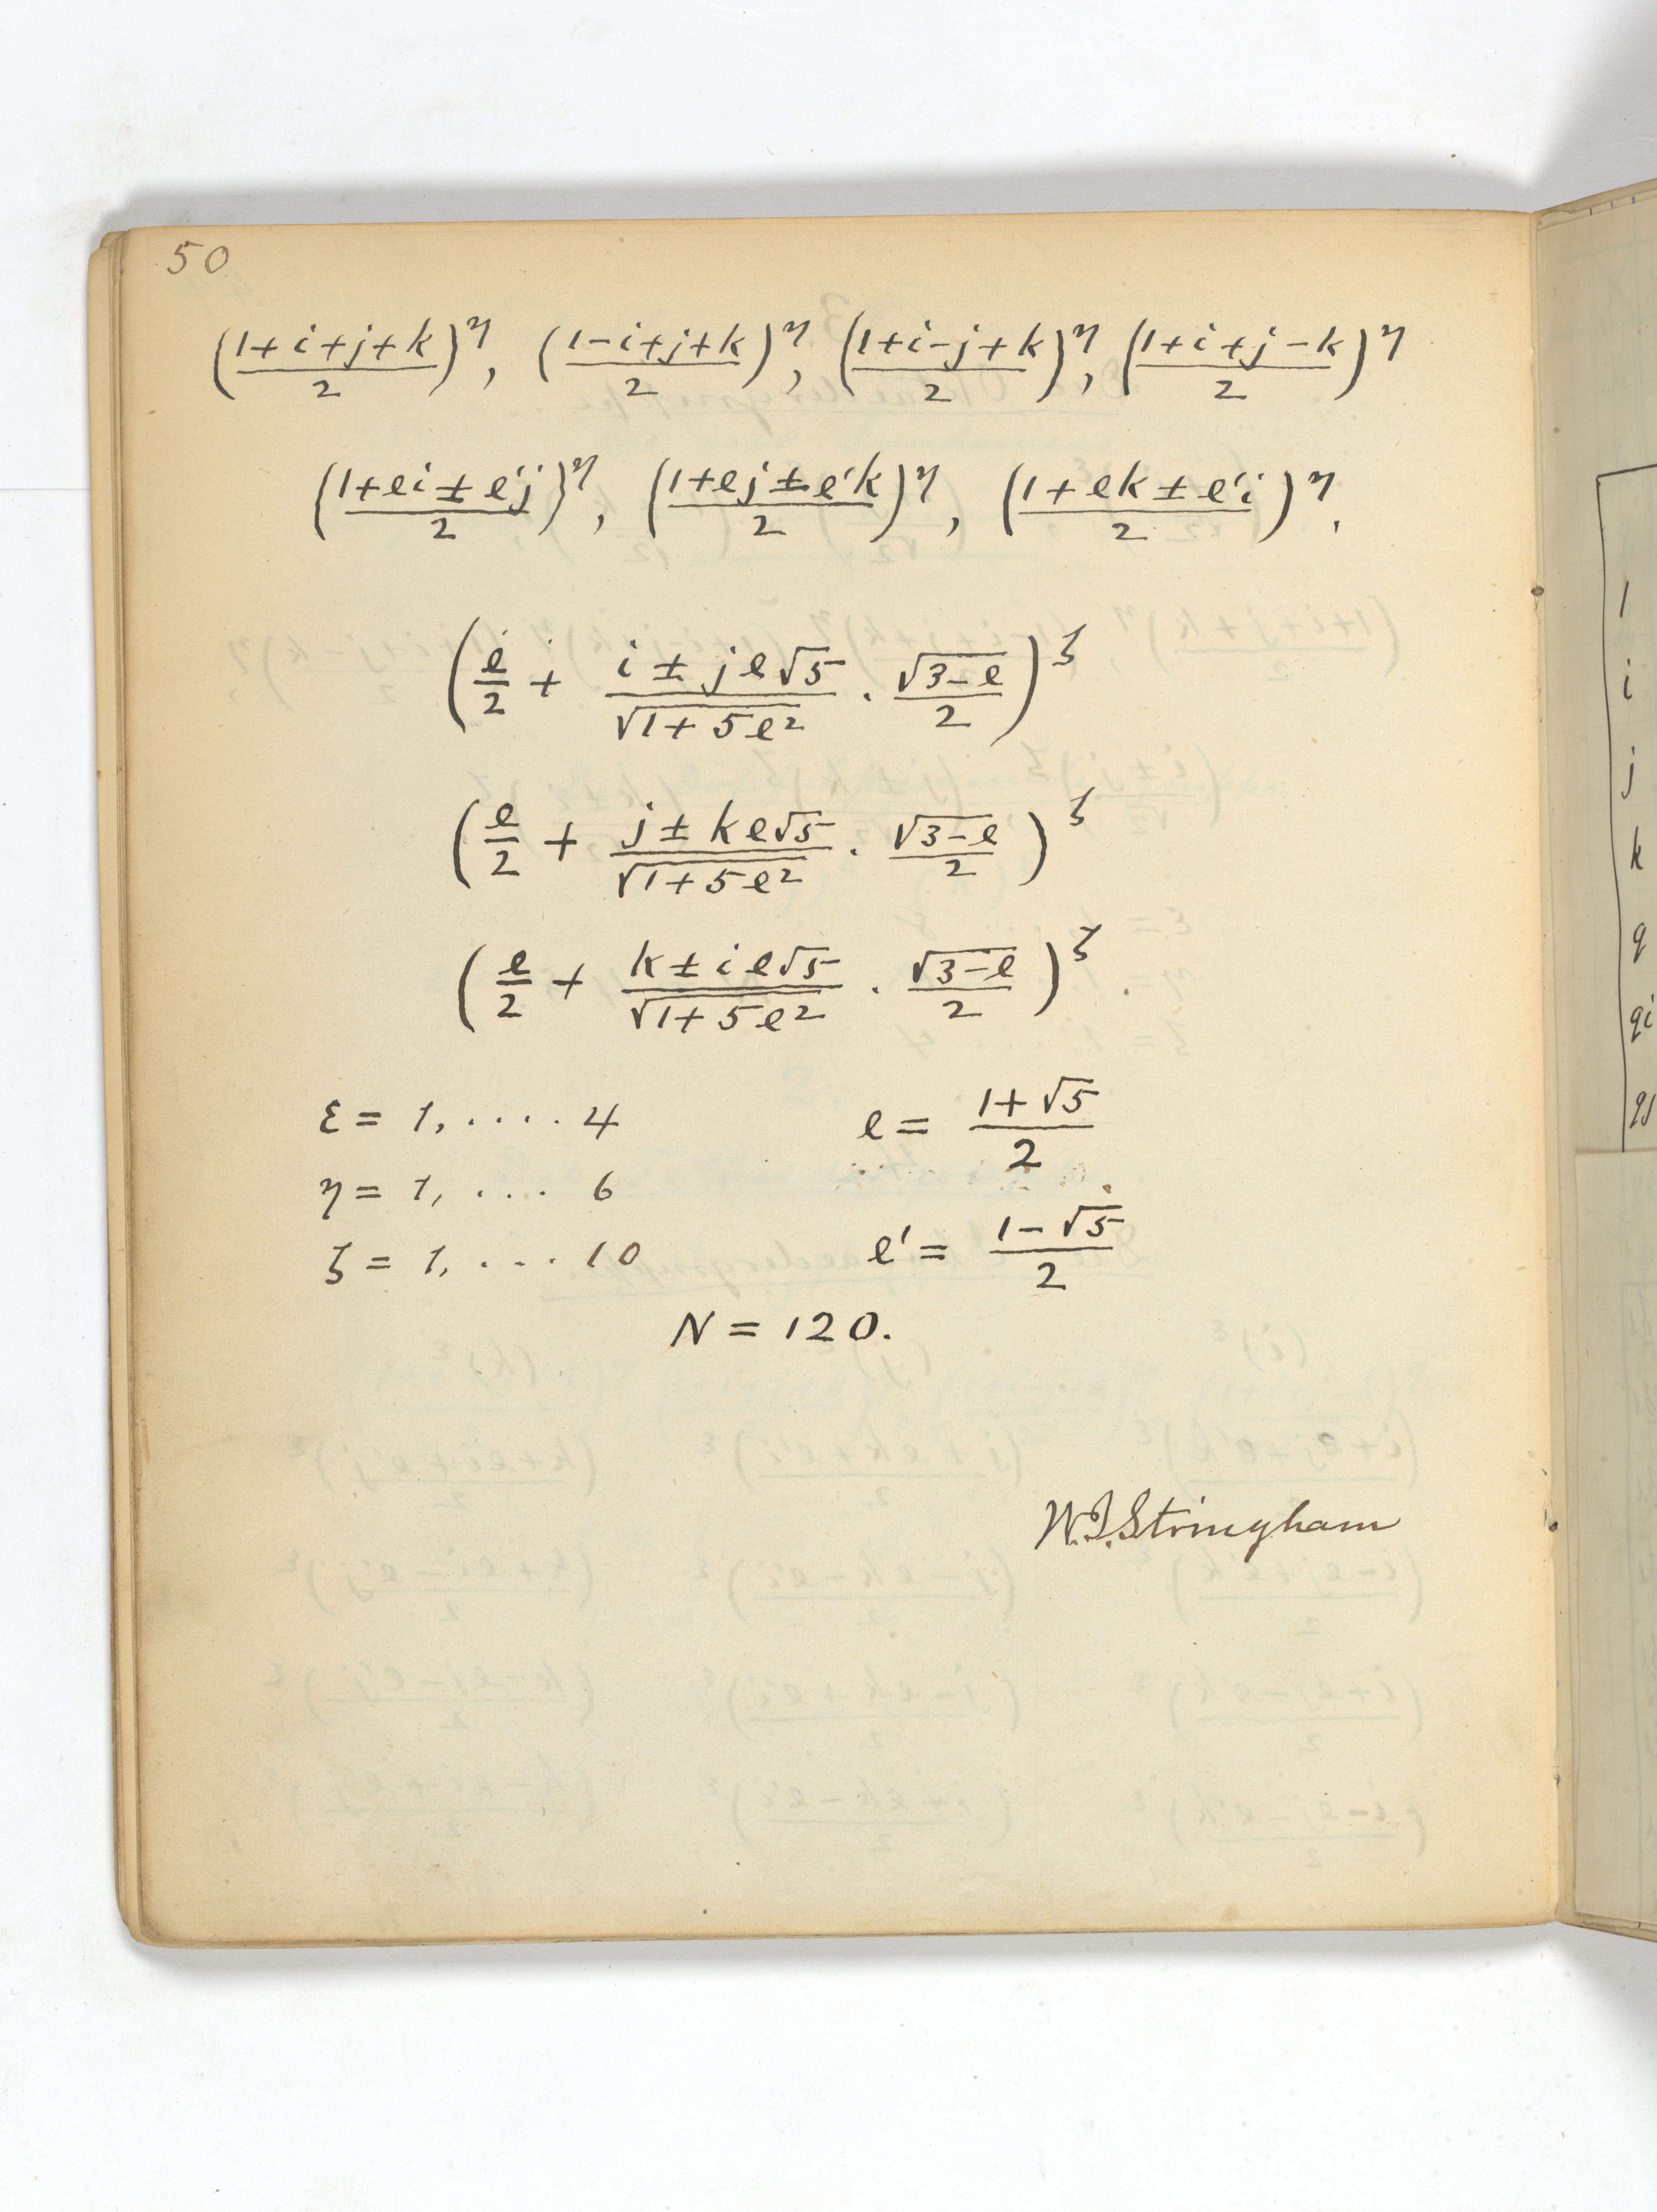 50
((1+i+j+k)/2)^η, ((1-i+j+k)/2)^η, ((1+i-j+k)/2)^η, ((1+i+j-k)/2)^η
((1+ei±e'j)/2)^η, ((1+ej±e'k)/2)^η, ((1+ek±e'i)/2)^η.
(e/2 + (i ± je√5)/√(1+5e²) · √(3-e)/2)^ζ
(e/2 + (j ± ke√5)/√(1+5e²) · √(3-e)/2)^ζ
(e/2 + (k ± ie√5)/√(1+5e²) · √(3-e)/2)^ζ.
ε = 1, .... 4 e = (1+√5)/2
η = 1, .... 6
ζ = 1, .... 10 e' = (1-√5)/2
N = 120.
W.I. Stringham
1
i
j
k
q
qi
qj